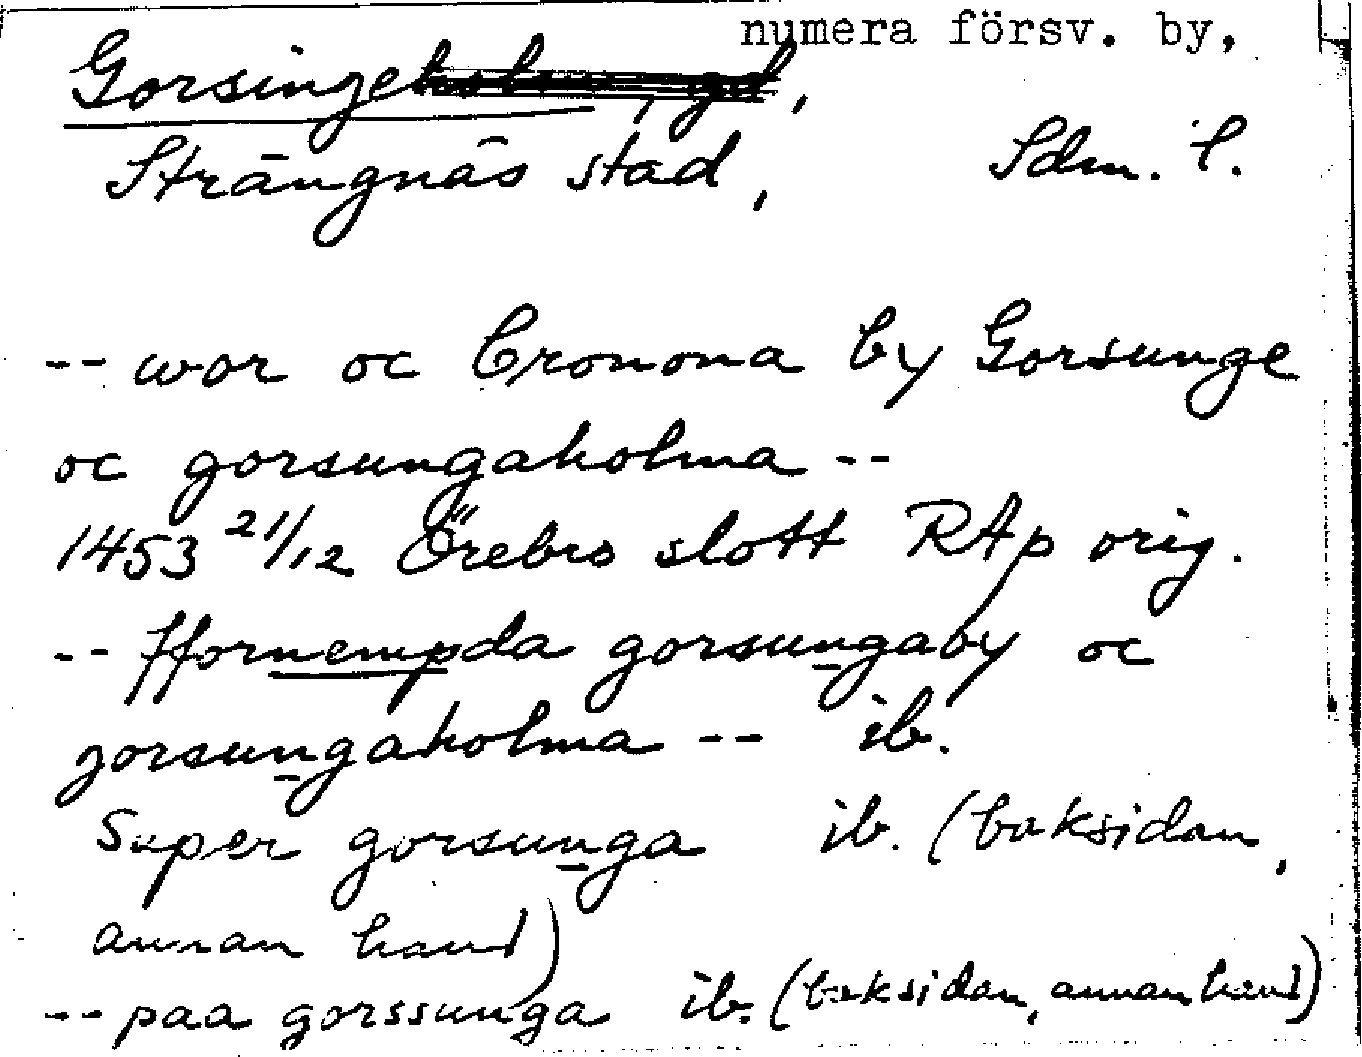 numera försv. by,
Gorsingeholm, gd,
Strängnäs stad, Sdm. l.
-- wor oc Cronona by Gorsunge
oc gorsungaholma --
1453 21/12 Örebro slott RAp orig.
-- ffornempda gorsungaby oc
gorsungaholma -- ib.
Super gorsunga ib. (baksidan,
annan hand)
-- paa gorssunga ib. (baksidan, annan hand)